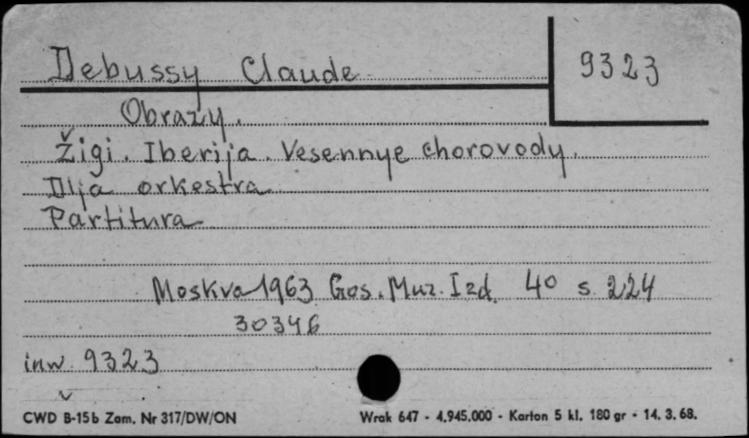 Debussy Claude 9323
Obrazy.
Žigi. Iberija. Vesennye chorovody.
Dlja orkestra
Partitura
Moskva 1963 Gos. Muz. Izd. 4° s. 224
30346
inw. 9323
CWD B-15b Zam. Nr 317/DW/ON Wrak 647 - 4.945.000 - Karton 5 kl. 180 gr - 14. 3. 68.